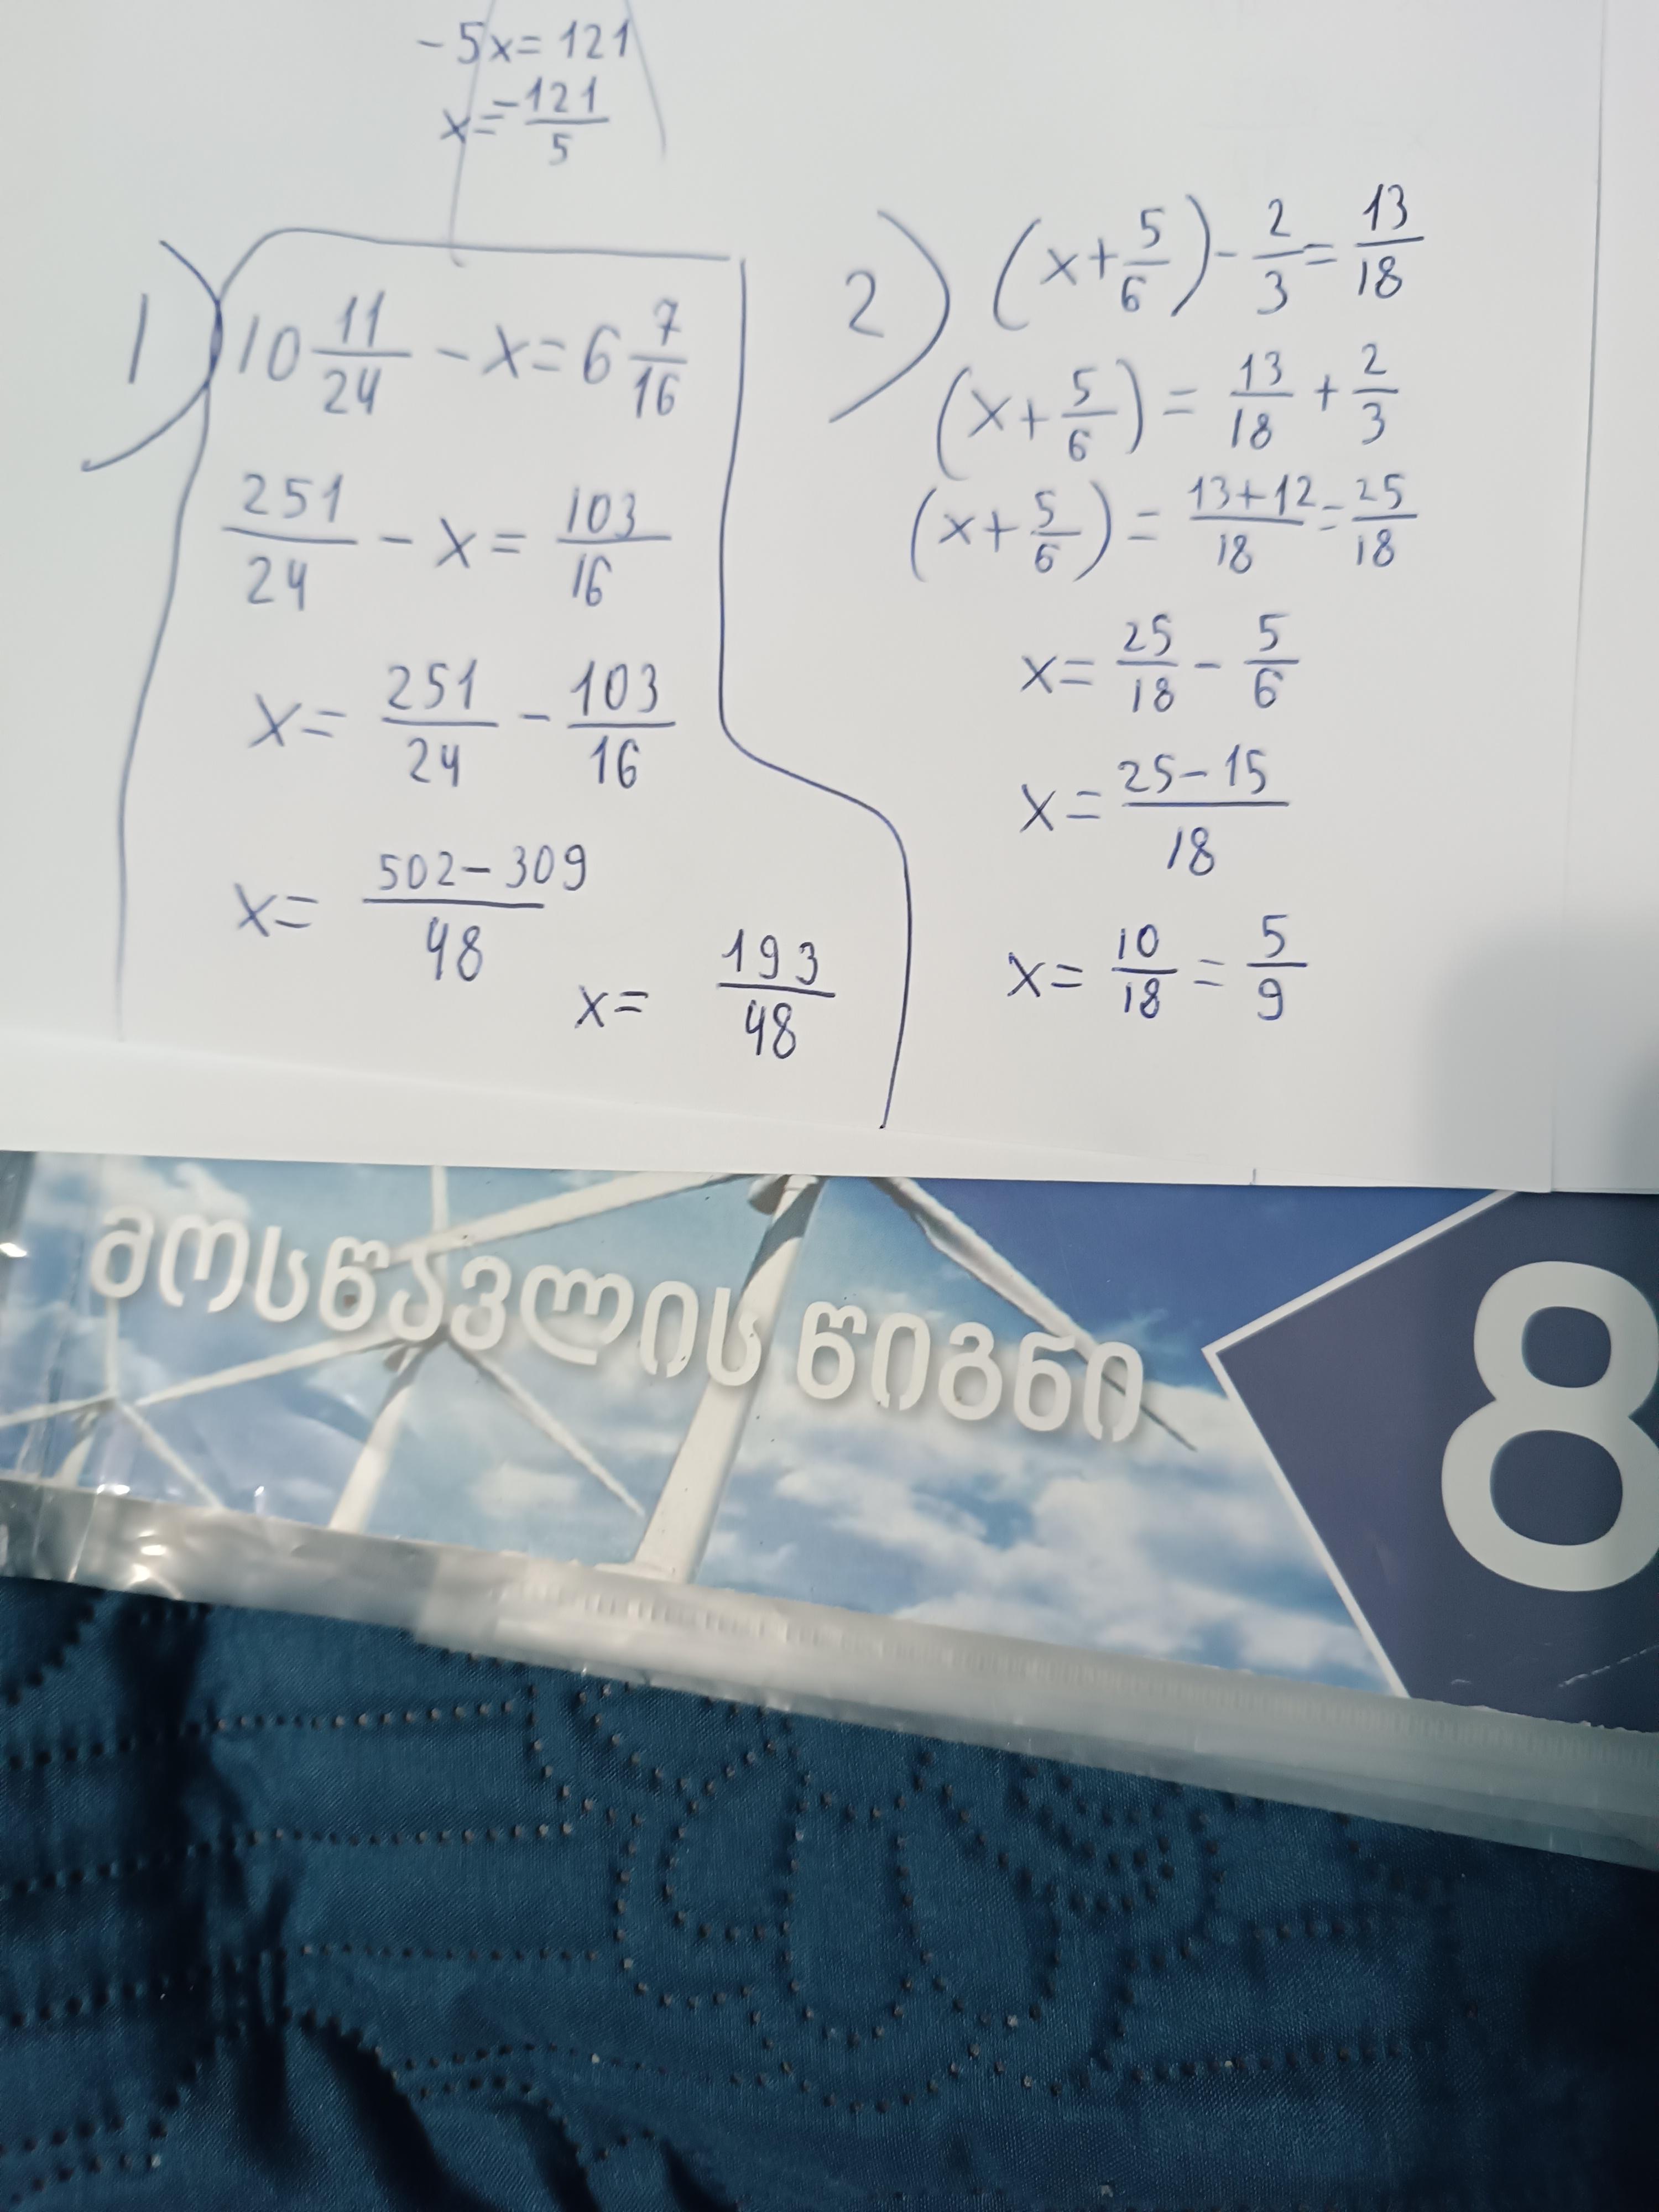 -5x=121
x=-121/5
1) 10 11/24 - x = 6 7/16
251/24 - x = 103/16
x = 251/24 - 103/16
x = 502-309/48
x = 193/48
2) (x+5/6) - 2/3 = 13/18
(x+5/6) = 13/18 + 2/3
(x+5/6) = 13+12/18 = 25/18
x = 25/18 - 5/6
x = 25-15/18
x = 10/18 = 5/9
მოსწავლის წიგნი 8